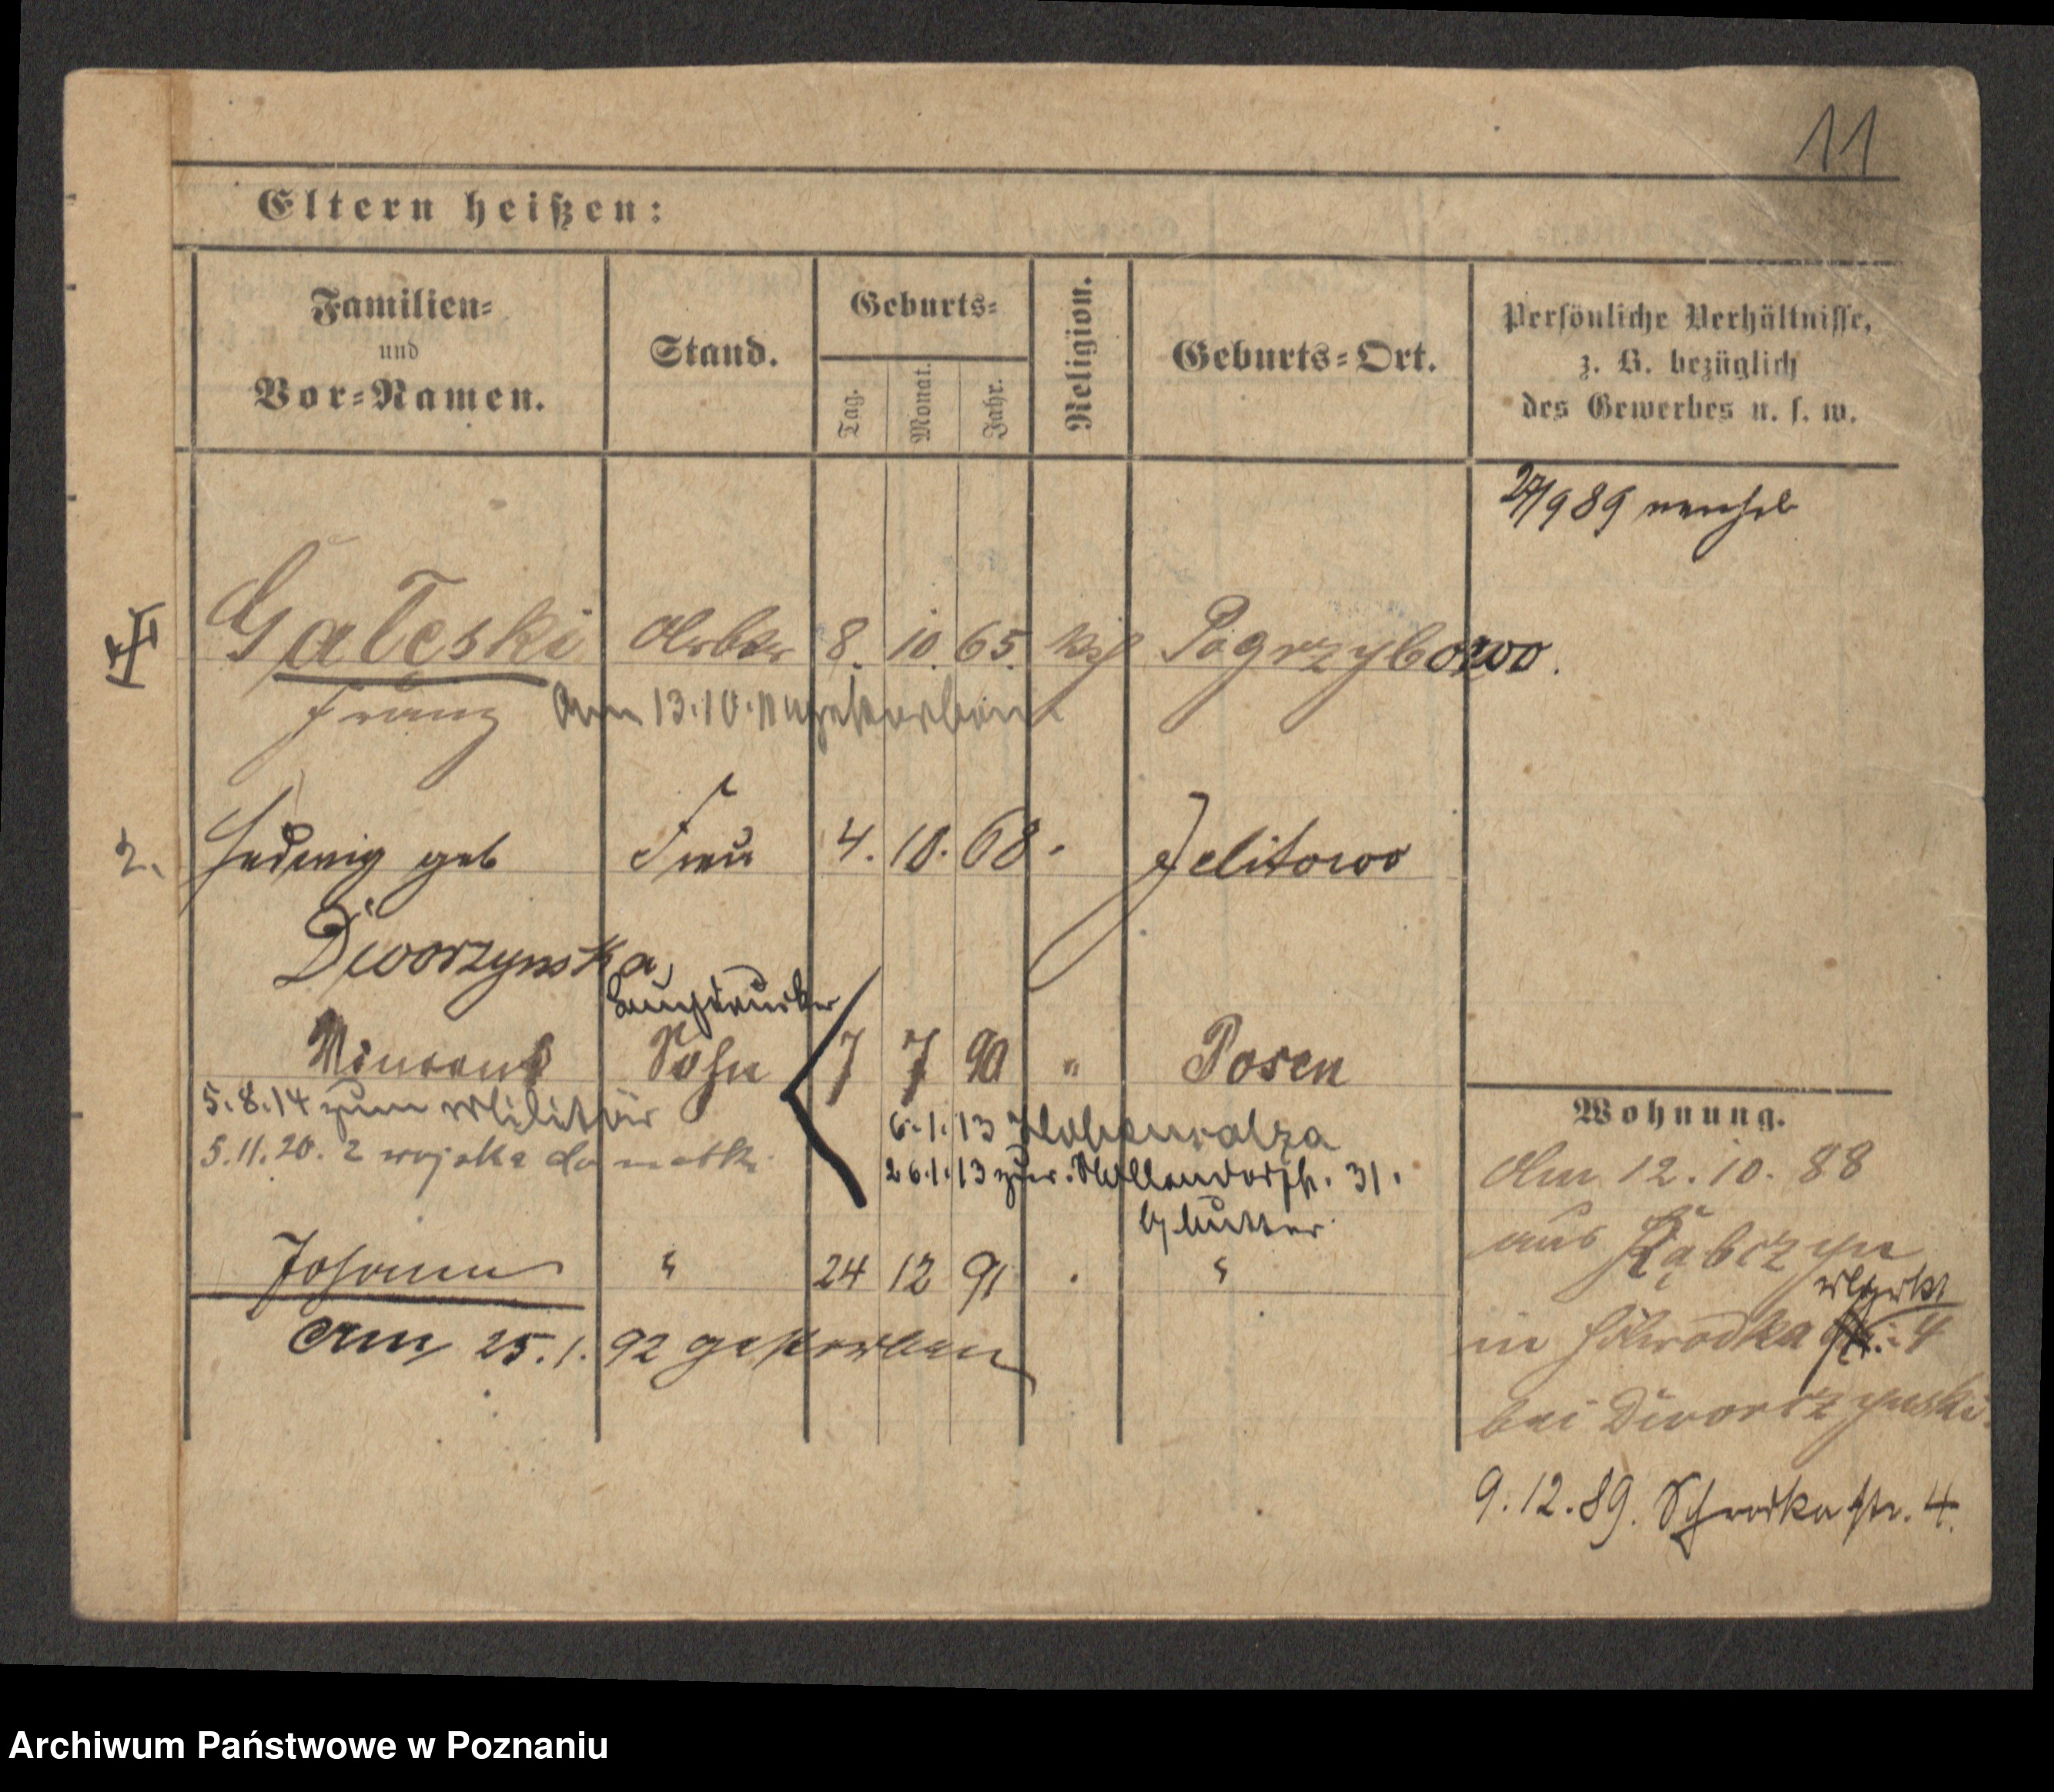 11
Eltern heißen:
Familien-
und
Vor-Namen.
Stand.
Geburts-
Tag.
Monat.
Jahr.
Religion.
Geburts-Ort.
Persönliche Verhältnisse,
z. B. bezüglich
des Gewerbes u. s. w.
27/9 89
Gałeski Arbtr 8. 10. 65. kth Pogrzybowo.
Franz Am 13.10. gestorben
2. Hedwig geb Frau 4. 10. 68. Jelitowo
Dworzynska
Vincent Sohn 7 7 90 " Posen
5.8.14 zum Militär
6.1.13 Hohensalza
5.11.20. z wojska do matki
26.1.13 zur. 31.
b/ Mutter.
Johann " 24 12 91 . "
Am 25.1.92 gestorben
Wohnung.
Am 12.10.88
aus Rąbczyn
Markt
in Schrodka 4
bei Dworzynski.
9.12.89. Schrodka str. 4.